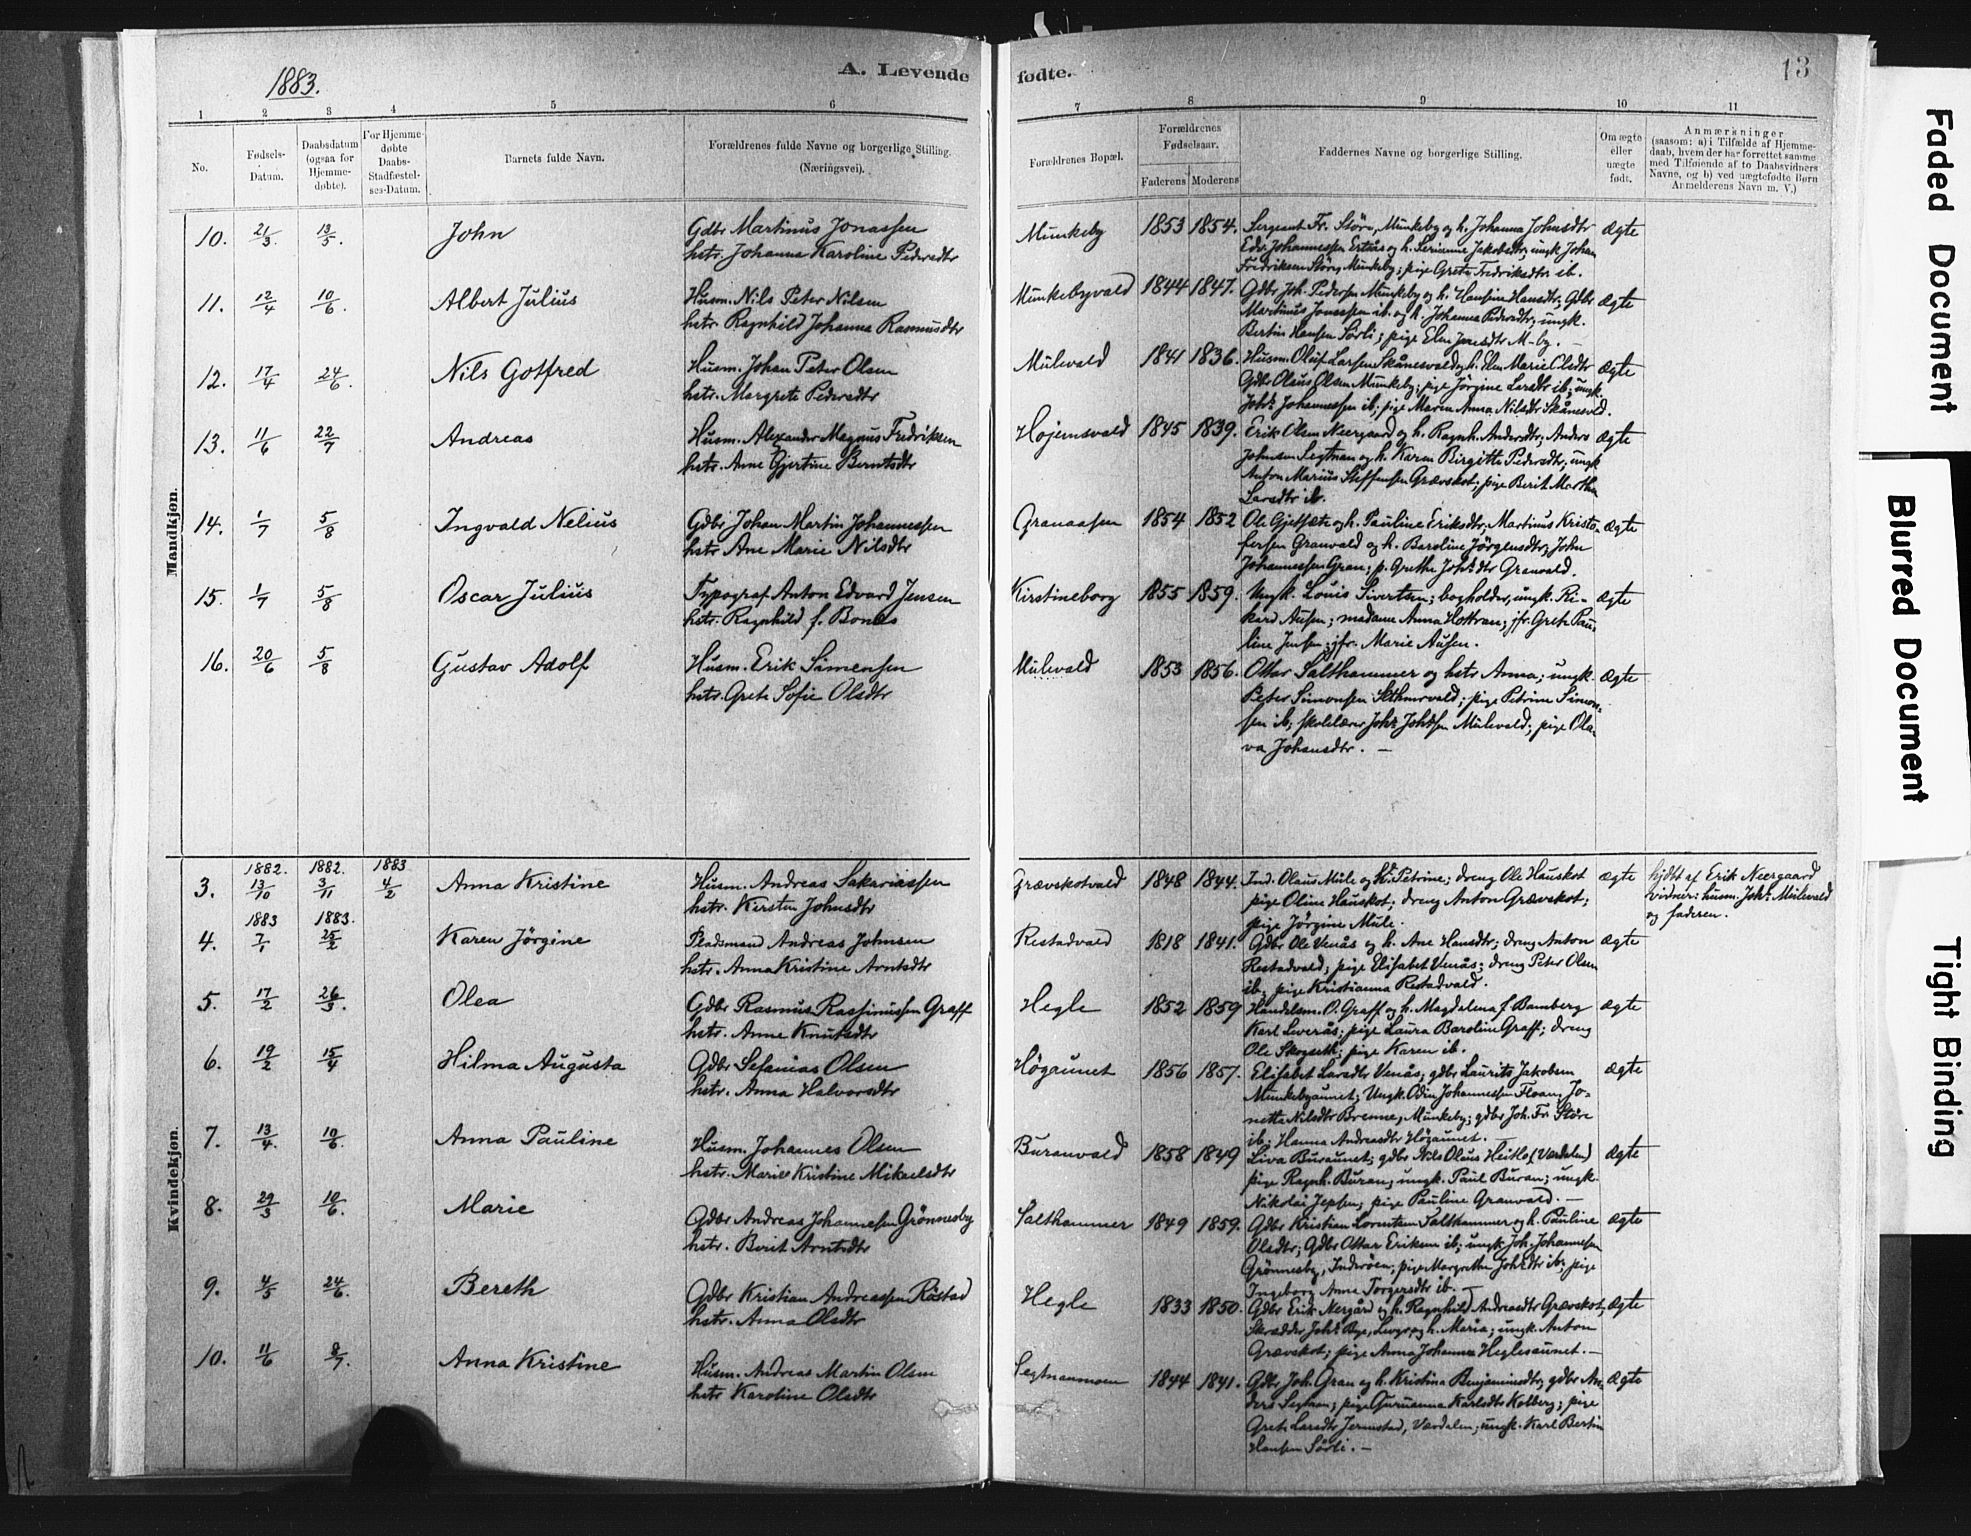 1883.
A. Levende
fødte.
13
1 2 3 4 5 6 7 8 9 10 11
No.
Fødsels-
Datum.
Daabsdatum
(ogsaa for
Hjemme-
døbte).
For Hjemme-
døbte
Daabs-
Stadfæstel-
ses-Datum.
Barnets fulde Navn.
Forældrenes fulde Navne og borgerlige Stilling.
(Næringsvei).
Forældrenes Bopæl.
Forældrenes
Fødselsaar.
Faderens Moderens
Faddernes Navne og borgerlige Stilling.
Om ægte
eller
uægte
født.
Anmærkninger
(saasom: a) i Tilfælde af Hjemme-
daab, hvem der har forrettet samme
med Tilføiende af to Daabsvidners
Navne, og b) ved uægtefødte Børn
Anmelderens Navn m. V.)
Mandkjøn.
10. 21/3 13/5. John
Gdbr Martinus Jonassen
hstr. Johanna Karoline Pedersdtr
Munkeby 1853 1854.
Sergeant Fr. Støre, Munkeby og h. Johanna Johnsdtr
Edv. Johannessen Ertsås og h. Serianna Jakobsdtr; ungk Johan
Fredriksen Støre, Munkeby; pige Grete Fredriksdtr ib.
ægte
11. 12/4 10/6. Albert Julius
Husm. Nils Peter Nilsen
hstr Ragnhild Johanna Rasmusdtr
Munkebyvald 1844 1847.
Gdbr Joh. Pedersen Munkeby og h. Hansine Hansdtr; Gdbr
Martinus Jonassen ib. og h. Johanna Pedersdtr; ungk.
Bertin Hansen Sørli; pige Elen Jonsdtr M-by. —
ægte
12. 17/4 24/6. Nils Gotfred
Husm. Johan Peter Olsen
hstr. Margrete Pedersdtr
Mulevald 1841 1836.
Husm. Oluf Larsen Skånesvald og h. Elen Marie Olsdtr
Gdbr Olaus Olsen Munkeby; pige Jørgine Larsdtr ib; ungk.
Johs. Johannessen ib; pige Maren Anna Nilsdtr Skånesvld.
ægte
13. 11/6 22/7 Andreas
Husm. Alexander Magnus Fredriksen
hstr. Anne Gjertine Berntsdtr
Højemsvald 1845 1839.
Erik Olsen Neergaard og h. Ragnh. Andersdtr; Anders
Johnsen Segtnan og h. Karen Birgitte Pedersdtr; ungk
Anton Marius Steffensen Grævskot; pige Berit Martha
Larsdtr ib.
ægte
14. 1/7 5/8 Ingvald Nelius
Gdbr Johan Martin Johannessen
hstr Ane Marie Nilsdtr
Granaasen 1854 1852
Ole Gjetsæte og h. Pauline Eriksdtr; Martinus Kristo-
fersen Granvald og h. Baroline Jörgensdtr; John
Johannessen Gran; p. Grethe Johs.dtr Granvald.
ægte
15. 1/7 5/8 Oscar Julius
Typograf Anton Edvard Jensen
hstr. Ragnhild f. Bones
Kirstineborg 1855 1859.
Ungk. Louis Sivertsen; bogholder, ungk. Ri-
kard Ausen; madame Anna Hottran; jfr. Grete Pau-
line Jensen; jfr. Marie Ausen.
ægte
16. 20/6 5/8 Gustav Adolf
Husm. Erik Simensen
hstr. Grete Sofie Olsdtr
Mulevald 1853 1856.
Ottar Salthammer og hstr Anna; ungk.
Peter Simonsen Slthmrvald; pige Petrine Simon-
sen ib; skolelærer Johs. Johssen Mulevald; pige Ola-
va Johansdtr. —
ægte
Kvindekjøn.
1882. 1882. 1883
3. 13/10 3/11 4/2 Anna Kristine
Husm. Andreas Sakariassen
hstr. Kirsten Johnsdtr
Grævskotvald 1848 1844.
Ind. Olaus Mule og h. Petrine; dreng Ole Hauskot
pige Oline Hauskot; dreng Anton Grævskot;
pige Jörgine Mule.
ægte
hjdbt af Erik Neergaard
vidner: husm. Johs. Mulevald
og faderen.
1883 1883.
4. 7/1 25/2 Karen Jörgine
Pladsmand Andreas Johnsen
hstr. Anna Kristine Arntsdtr
Restadvald 1818 1841.
Gdbr Ole Venås og h. Ane Hansdtr; dreng Anton
Restadvald; pige Elisabet Venås; dreng Peter Olsen
ib; pige Kristianna Restadvald.
ægte
5. 17/2 26/3. Olea
Gdbr Rasmus Rasmussen Graff
hstr. Anne Knutsdtr
Hegle 1852 1859
Handelsm. O. Graff og h. Magdalena f. Bamberg
Karl Leverås; pige Laura Baroline Graff; dreng
Ole Skogseth; pige Karen ib.
ægte
6. 19/2 15/4 Hilma Augusta
Gdbr Sefanias Olsen
hstr. Anna Halvorsdtr
Högaunet 1856 1857.
Elisabet Larsdtr Venås; gdbr Laurits Jakobsen
Munkebyaunet; Ungk. Odin Johannessen Floan; Jo-
nette Nilsdtr Brenne, Munkeby; gdbr Joh. Fr. Støre
ib; Hanna Andreasdtr Högaunet.
ægte
7. 13/4. 10/6. Anna Pauline
Husm. Johannes Olsen
hstr. Marie Kristine Mikaelsdtr
Buranvald 1858 1849
Liva Buraunet; gdbr Nils Olaus Heitlo (Værdalen)
pige Ragnh. Buran; ungk. Paul Buran; ungk.
Nikolai Jepsen; pige Pauline Granvald. —
ægte
8. 29/3 10/6. Marie
Gdbr Andreas Johannesen Grönnesby
hstr. Berit Arntsdtr
Salthammer 1849 1859.
Gdbr Kristian Lorentsen Salthammer og h. Pauline
Olsdtr; Gdbr Ottar Eriksen ib; ungk. Joh. Johannesen
Grönnesby, Inderöen; pige Margrethe Johs.dtr ib; pige
Ingeborg Anna Torgersdtr ib. —
ægte
9. 4/5 24/6. Bereth
Gdbr Kristian Andreassen Röstad
hstr. Anna Olsdtr
Hegle 1833 1850.
Gdbr Erik Nergård og h. Ragnhild Andreasdtr Grævskot;
Skrædder Johs. Bye, Levgr, og h. Maria; ungk. Anton
Grævskot; pige Anna Johanna Heglesaunet. —
ægte
10. 11/6 8/7. Anna Kristine
Husm. Andreas Martin Olsen
hstr Karoline Olsdtr
Segtnanmoen 1844 1841.
Gdbr Joh. Gran og h. Kristina Benjaminsdtr; gdbr An-
ders Segtnan; pige Gurianna Karlsdtr Kolberg; pige
Grete Larsdtr Jermstad, Værdalen; ungk. Karl Bertin
Hansen Sørli. —
ægte
Faded Document
Blurred Document
Tight Binding